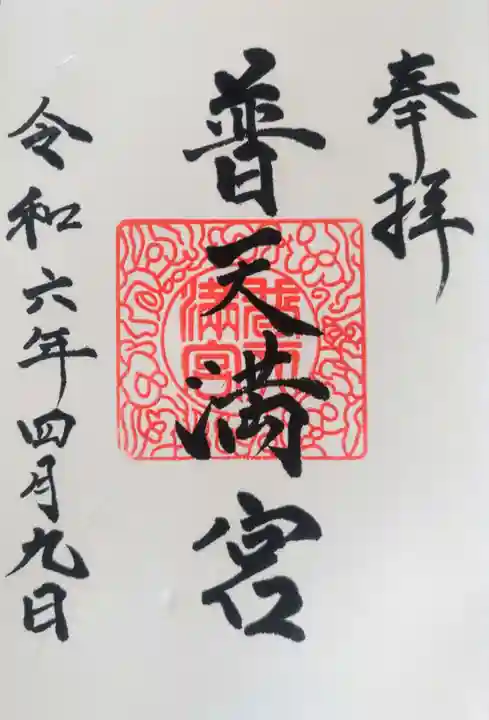 奉拝
普天満宮
令和六年四月九日